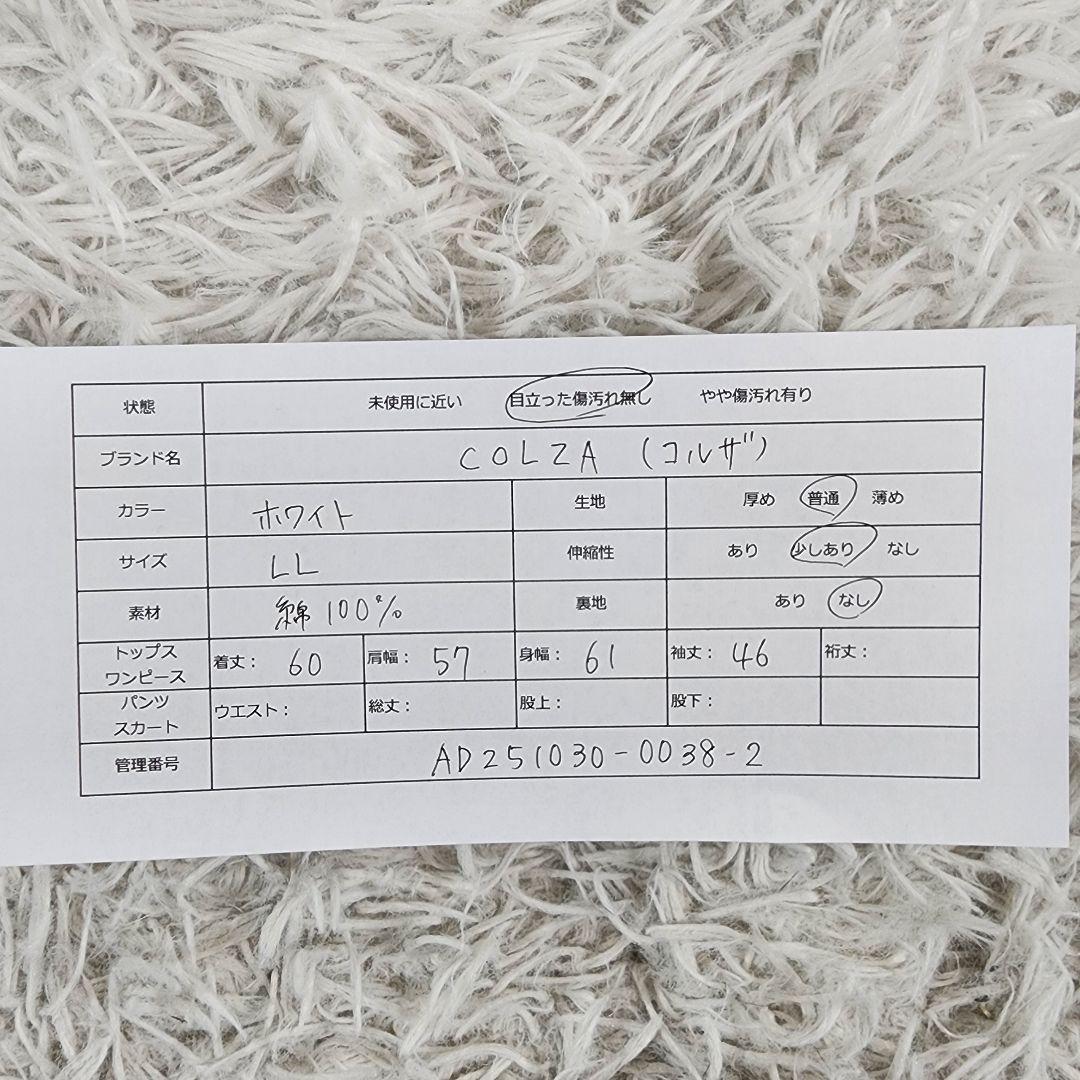 状態 未使用に近い 目立った傷汚れ無し やや傷汚れ有り
ブランド名 COLZA (コルザ)
カラー ホワイト 生地 厚め 普通 薄め
サイズ LL 伸縮性 あり 少しあり なし
素材 綿100% 裏地 あり なし
トップス
ワンピース 着丈: 60 肩幅: 57 身幅: 61 袖丈: 46 裄丈:
パンツ
スカート ウエスト: 総丈: 股上: 股下:
管理番号 AD251030-0038-2